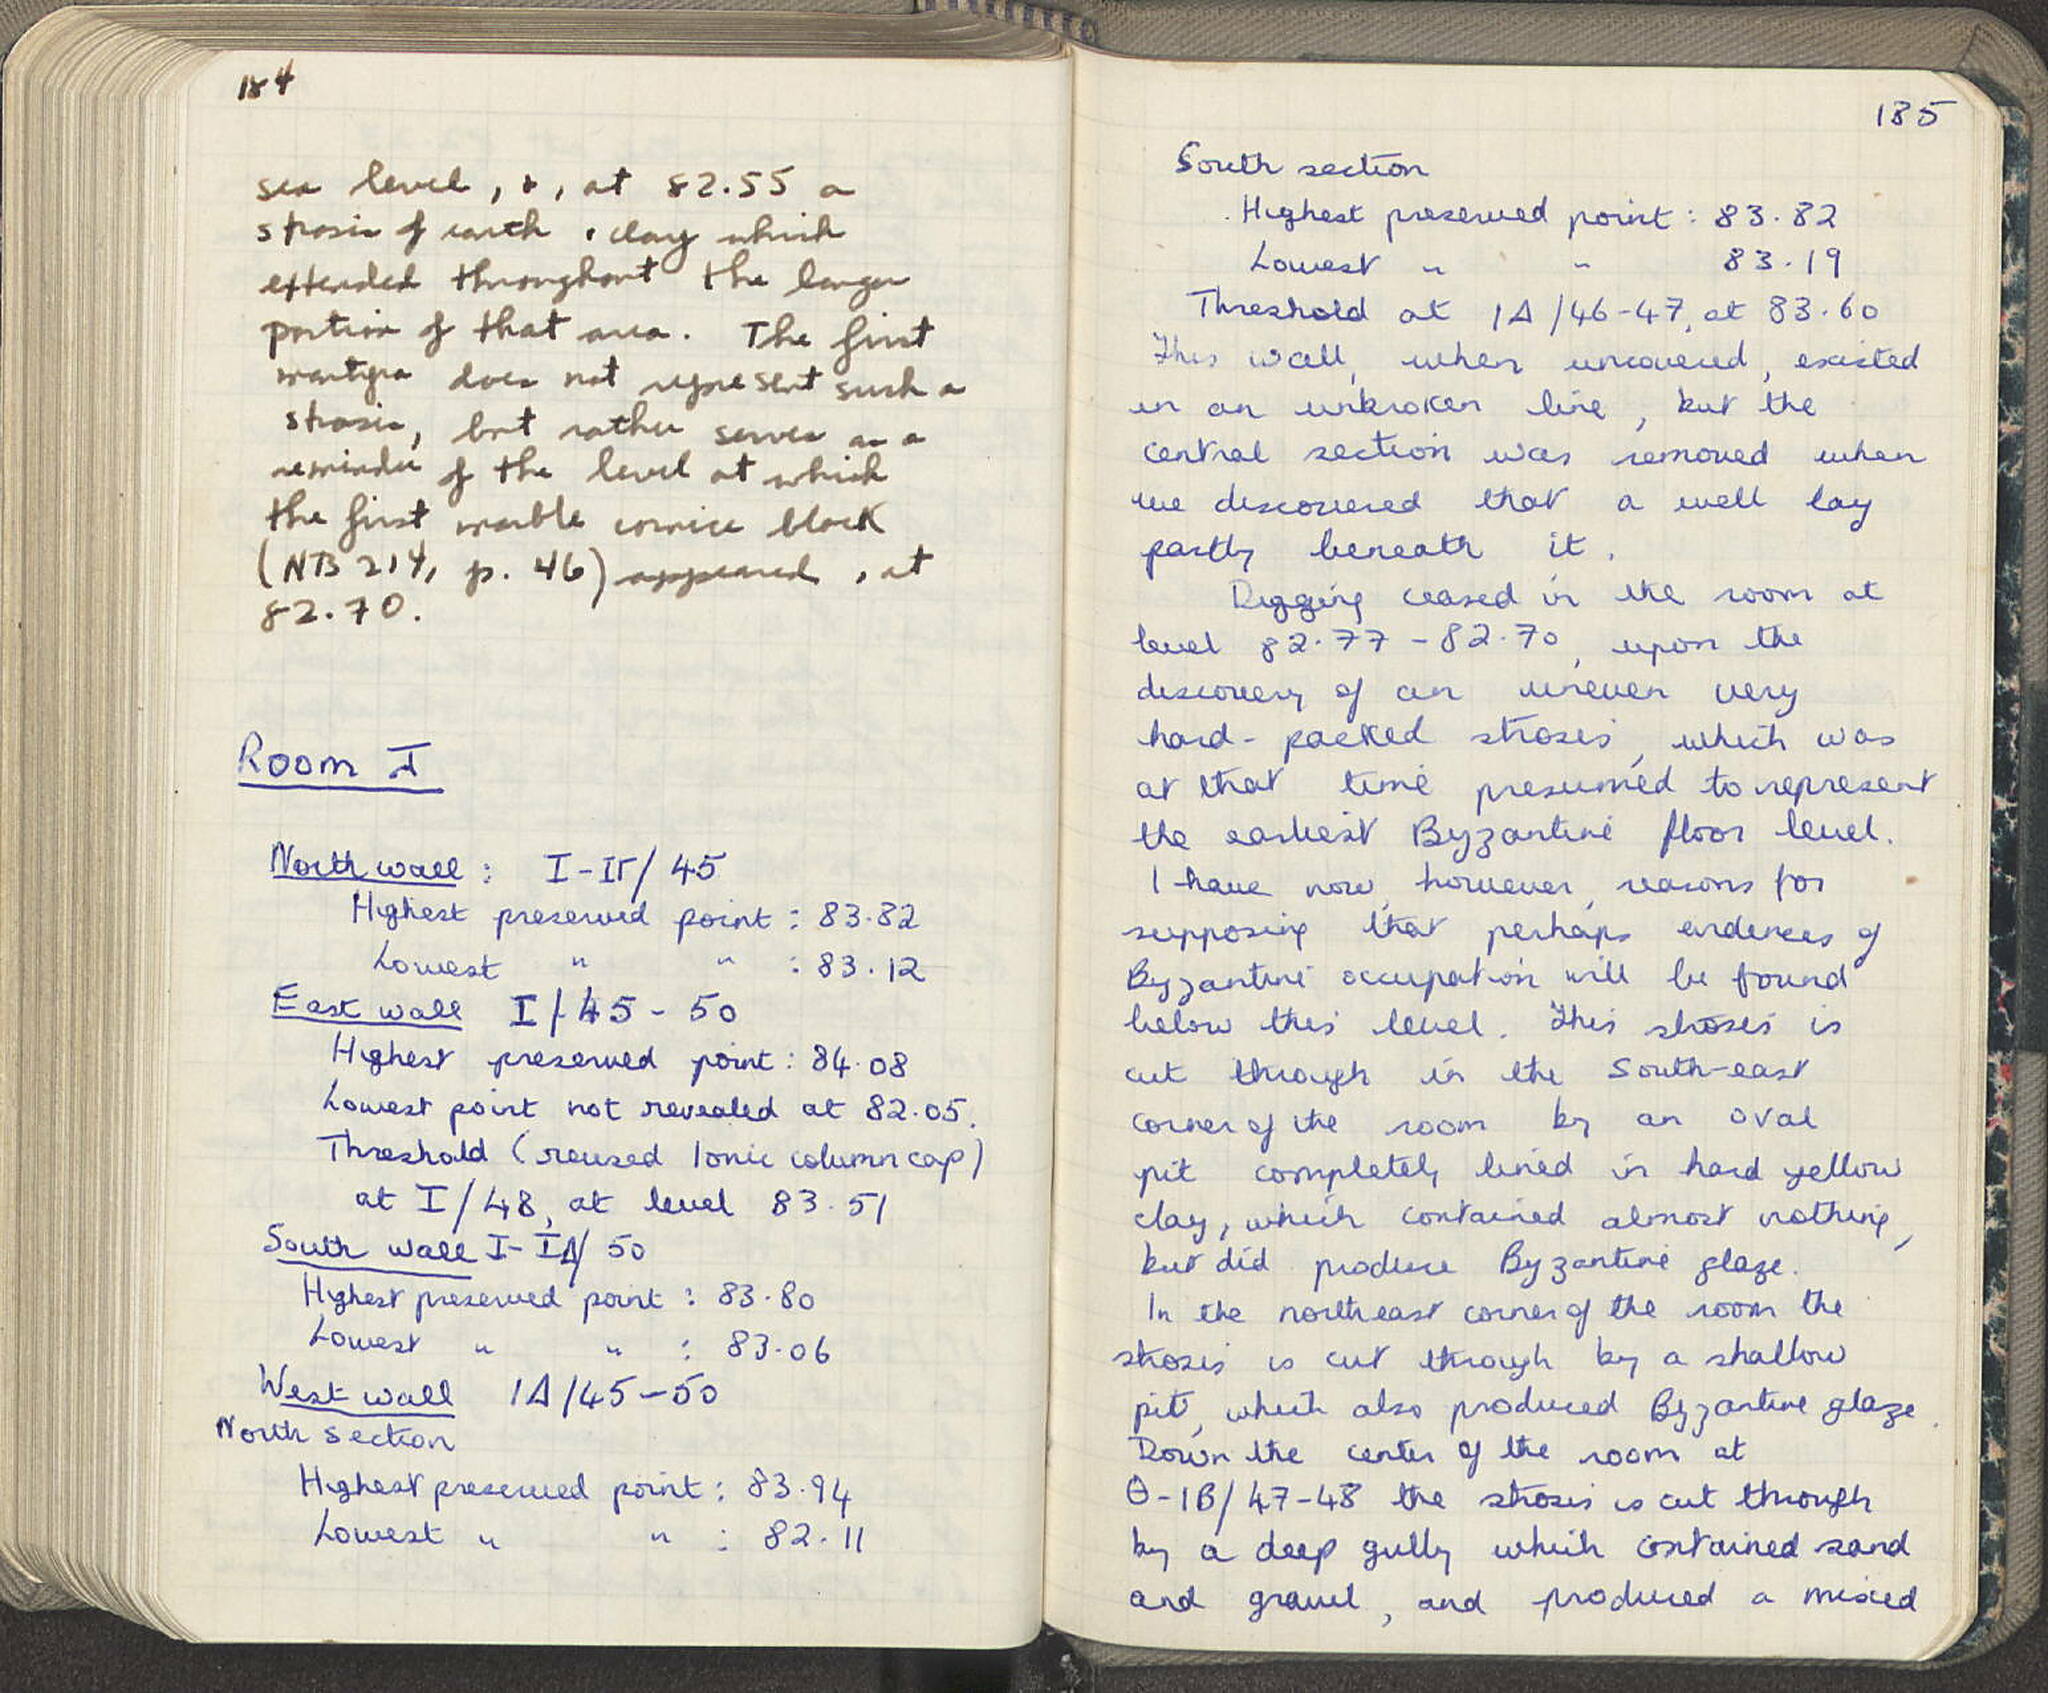 184
sea level, &, at 82.55 a
strosis of earth & clay which
extended throughout the larger
portion of that area. The first
martyra does not represent such a
strosis, but rather serves as a
reminder of the level at which
the first marble cornice block
(NB 214, p. 46) appeared, at
82.70.
Room I
North wall: I-IΓ/45
Highest preserved point: 83.82
Lowest " " : 83.12
East wall I/45-50
Highest preserved point: 84.08
Lowest point not revealed at 82.05.
Threshold (reused Ionic column cap)
at I/48, at level 83.51
South wall I-IΔ/50
Highest preserved point: 83.80
Lowest " " : 83.06
West wall IΔ/45-50
North section
Highest preserved point: 83.94
Lowest " " : 82.11
185
South section
Highest preserved point: 83.82
Lowest " " 83.19
Threshold at IΔ/46-47, at 83.60
This wall, when uncovered, existed
in an unbroken line, but the
central section was removed when
we discovered that a well lay
partly beneath it.
Digging ceased in the room at
level 82.77-82.70, upon the
discovery of an uneven very
hard-packed strosis, which was
at that time presumed to represent
the earliest Byzantine floor level.
I have now, however, reasons for
supposing that perhaps evidences of
Byzantine occupation will be found
below this level. This strosis is
cut through in the South-east
corner of the room by an oval
pit completely lined in hard yellow
clay, which contained almost nothing,
but did produce Byzantine glaze.
In the northeast corner of the room the
strosis is cut through by a shallow
pit, which also produced Byzantine glaze.
Down the center of the room at
Θ-IB/47-48 the strosis is cut through
by a deep gully which contained sand
and gravel, and produced a mixed